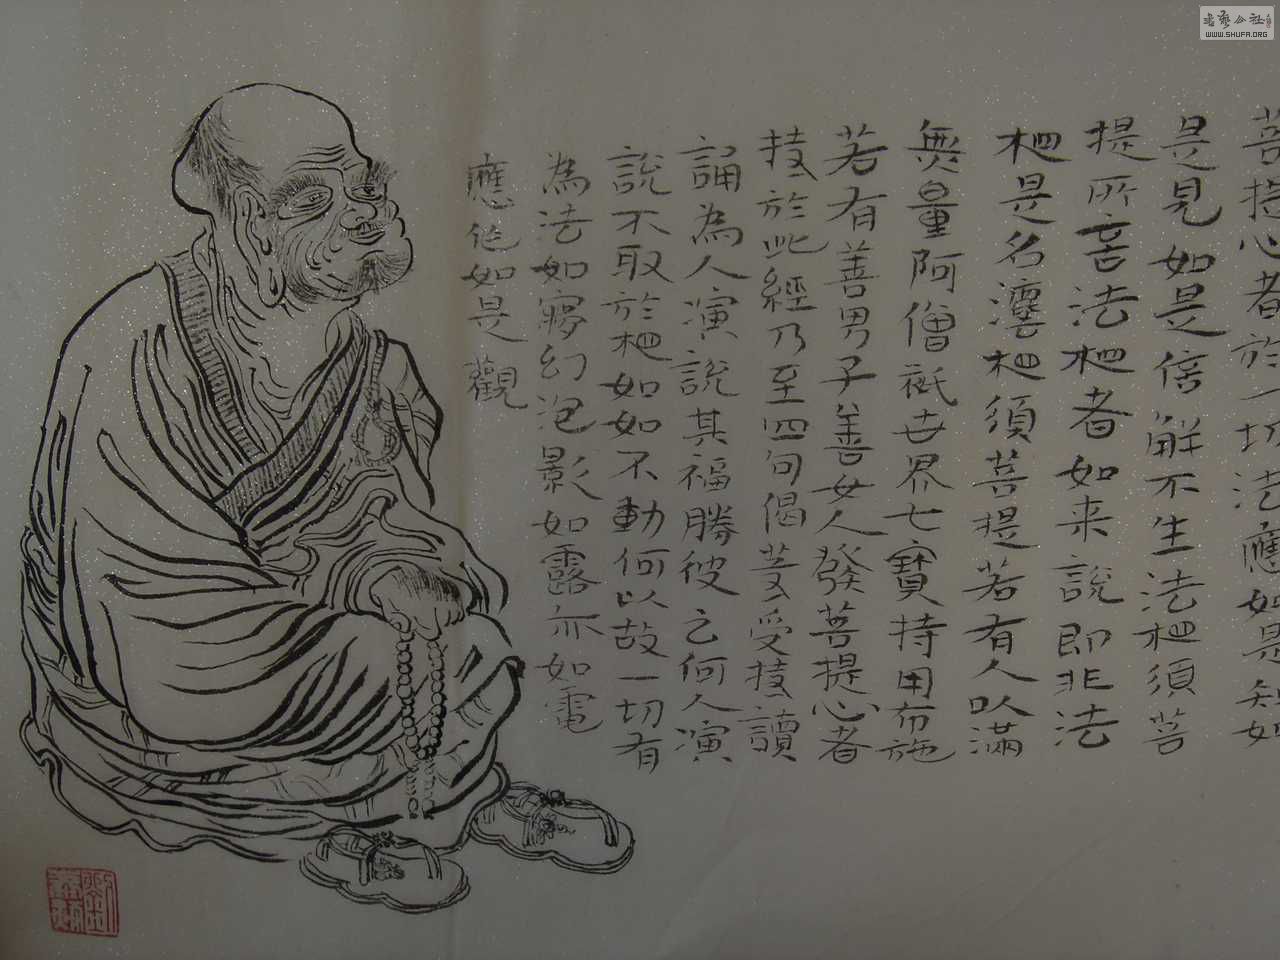 菩提心者於一切法應如是知如
是見如是信解不生法相須菩
提所言法相者如来說即非法
相是名灋相須菩提若有人以滿
無量阿僧祇世界七寶持用布施
若有善男子善女人發菩提心者
持於此經乃至四句偈等受持讀
誦為人演說其福勝彼云何人演
說不取於相如如不動何以故一切有
為法如夢幻泡影如露亦如電
應作如是觀
书艺公社
WWW.SHUFA.ORG